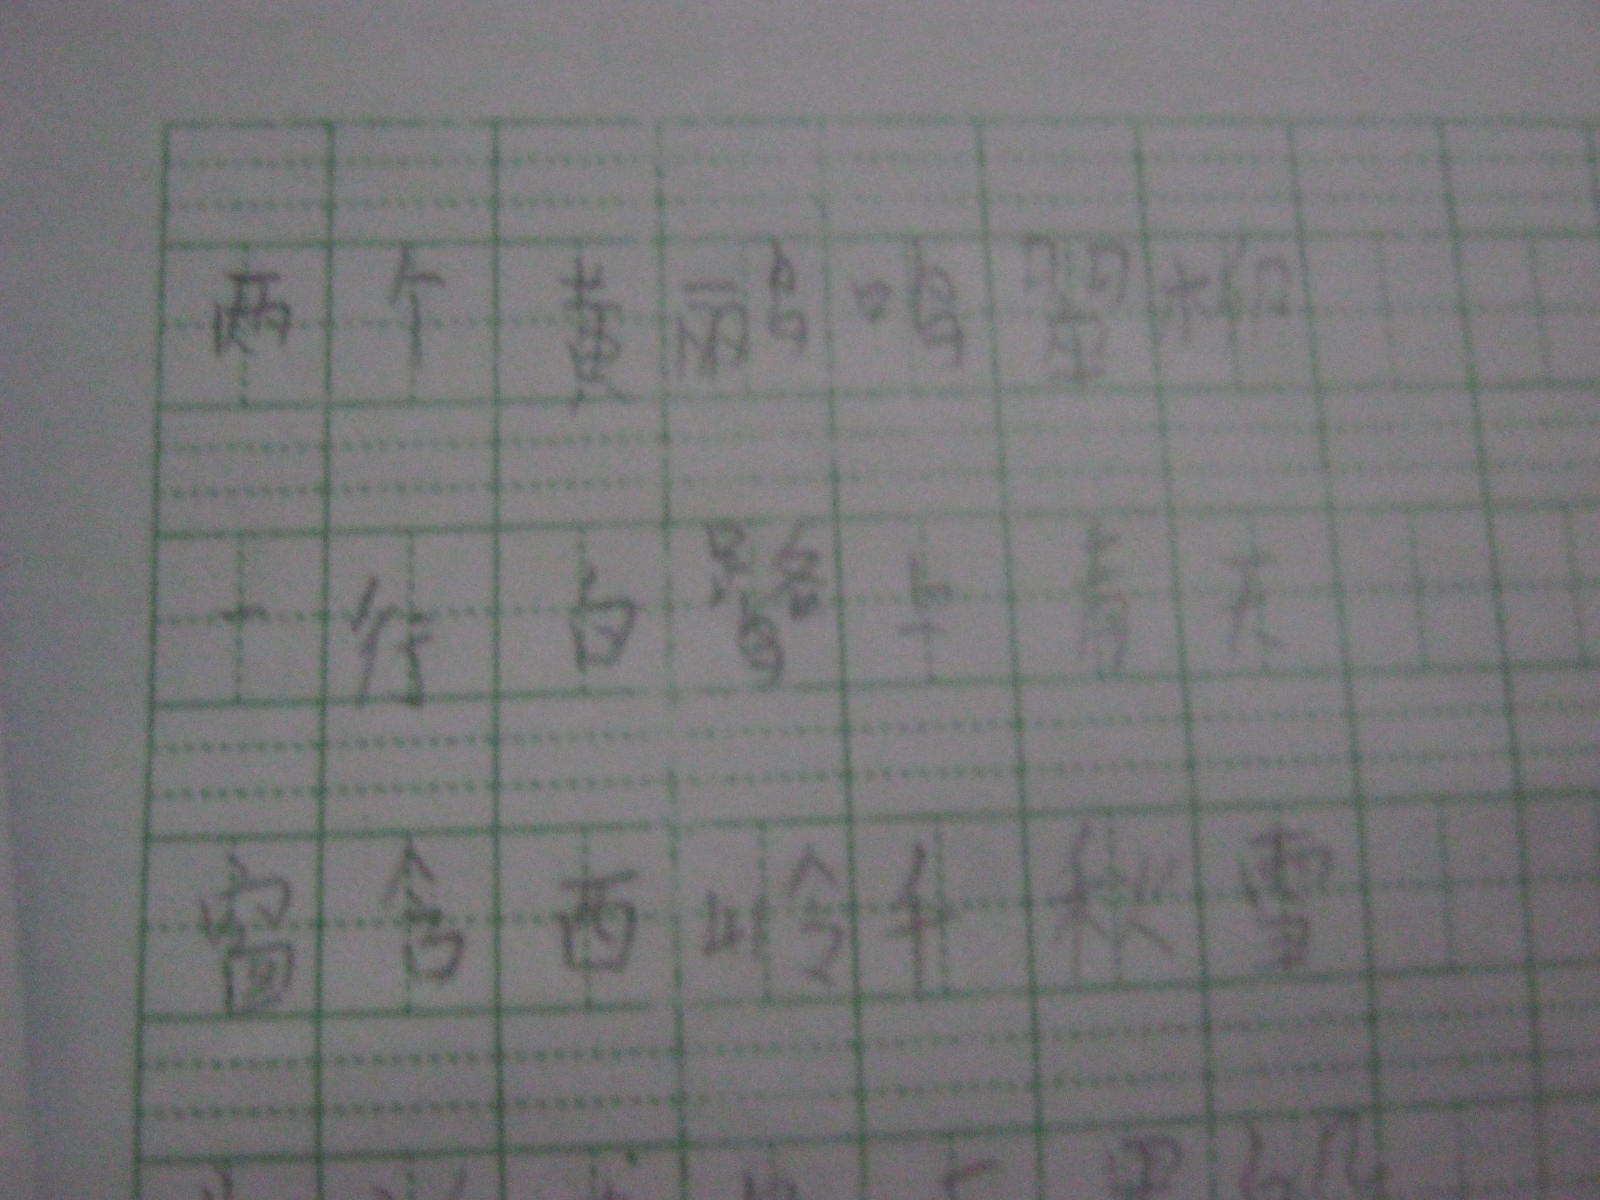 两个黄鹂鸣翠柳
一行白鹭上青天
窗含西岭千秋雪